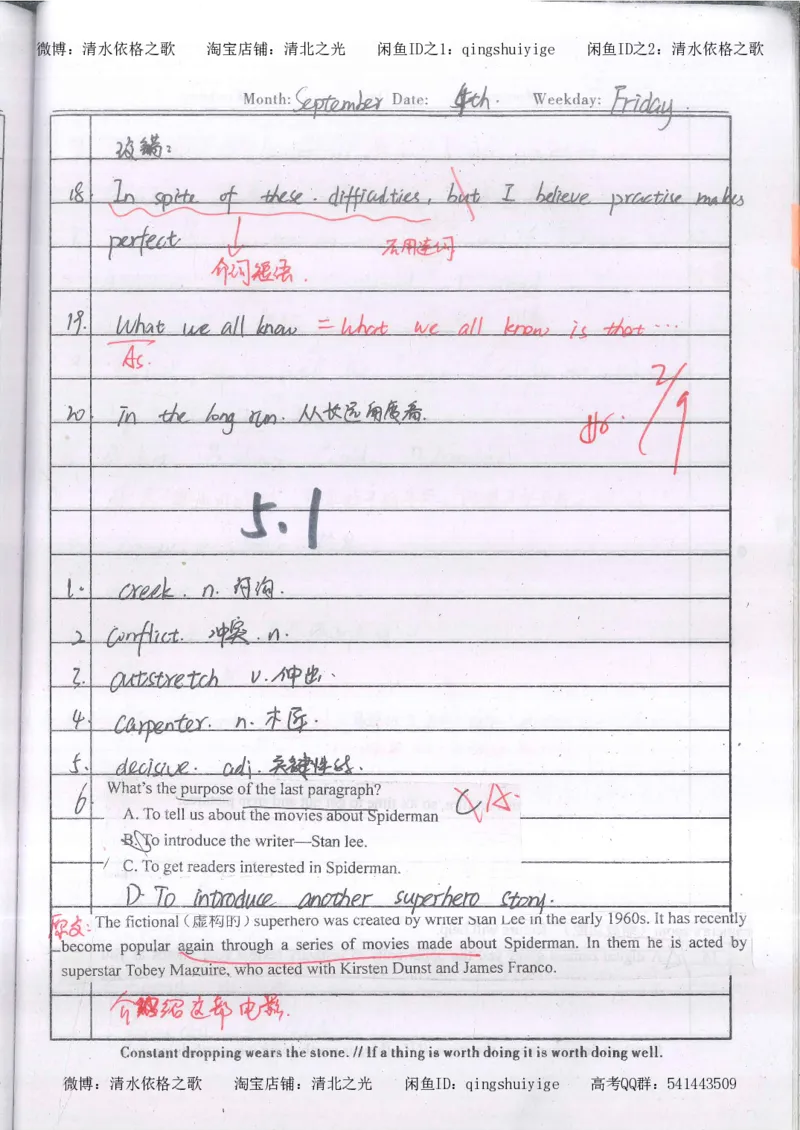 微博：清水依格之歌 淘宝店铺：清北之光 闲鱼ID之1：qingshuiyige 闲鱼ID之2：清水依格之歌
Month: September Date: 4th. Weekday: Friday.
改编：
18. In spite of these difficulties, but I believe practise makes
perfect
不用连词
介词短语.
19. What we all know = What we all know is that …
As.
20. In the long run. 从长远角度看.
2/9
5.1
1. creek. n. 小沟.
2 Conflict. 冲突. n.
3. outstretch v. 伸出.
4. Carpenter. n. 木匠.
5. decisive. adj. 关键性的.
6 What's the purpose of the last paragraph? C A.
A. To tell us about the movies about Spiderman
B. To introduce the writer—Stan lee.
C. To get readers interested in Spiderman.
D. To introduce another superhero story.
原文: The fictional (虚构的) superhero was created by writer Stan Lee in the early 1960s. It has recently
become popular again through a series of movies made about Spiderman. In them he is acted by
superstar Tobey Maguire, who acted with Kirsten Dunst and James Franco.
介绍这部电影.
Constant dropping wears the stone. // If a thing is worth doing it is worth doing well.
微博：清水依格之歌 淘宝店铺：清北之光 闲鱼ID：qingshuiyige 高考QQ群：541443509